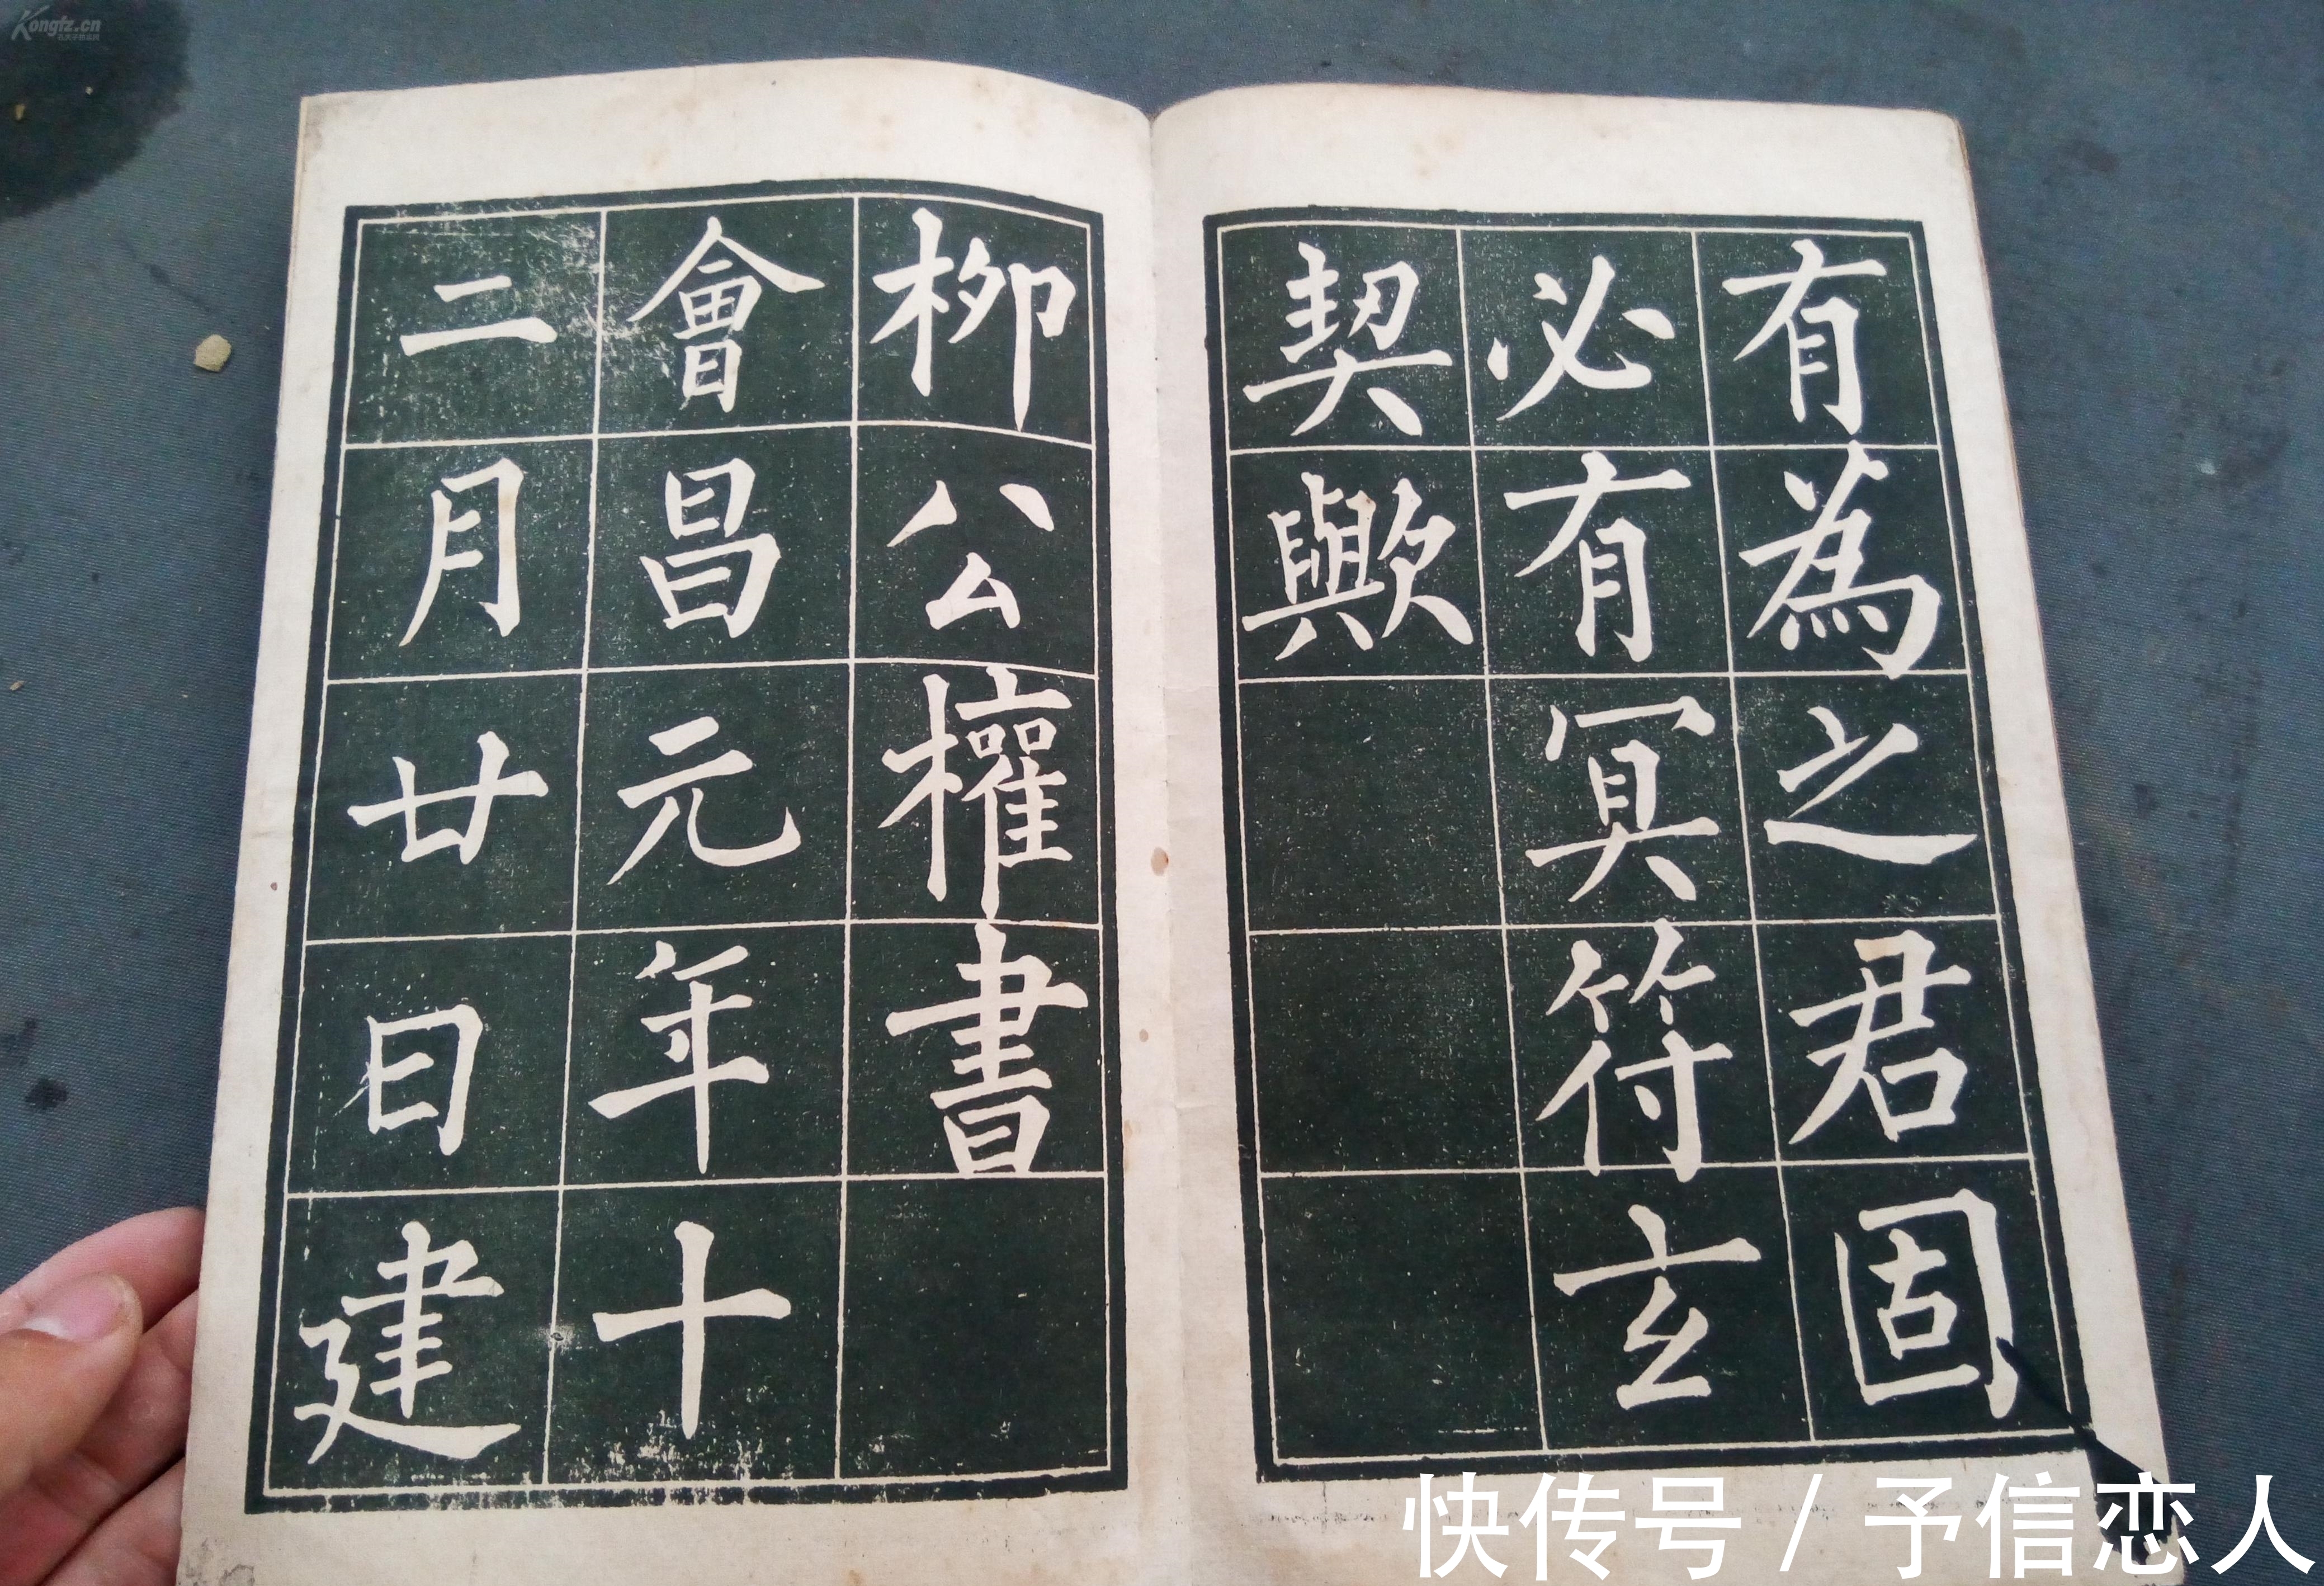 有為之君固
必有冥符玄
契歟
柳公權書
會昌元年十
二月廿日建
Kongfz.cn
快传号 / 予信恋人